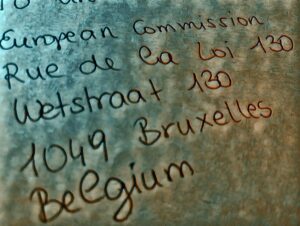 European Commission
Rue de la Loi 130
Wetstraat 130
1049 Bruxelles
Belgium